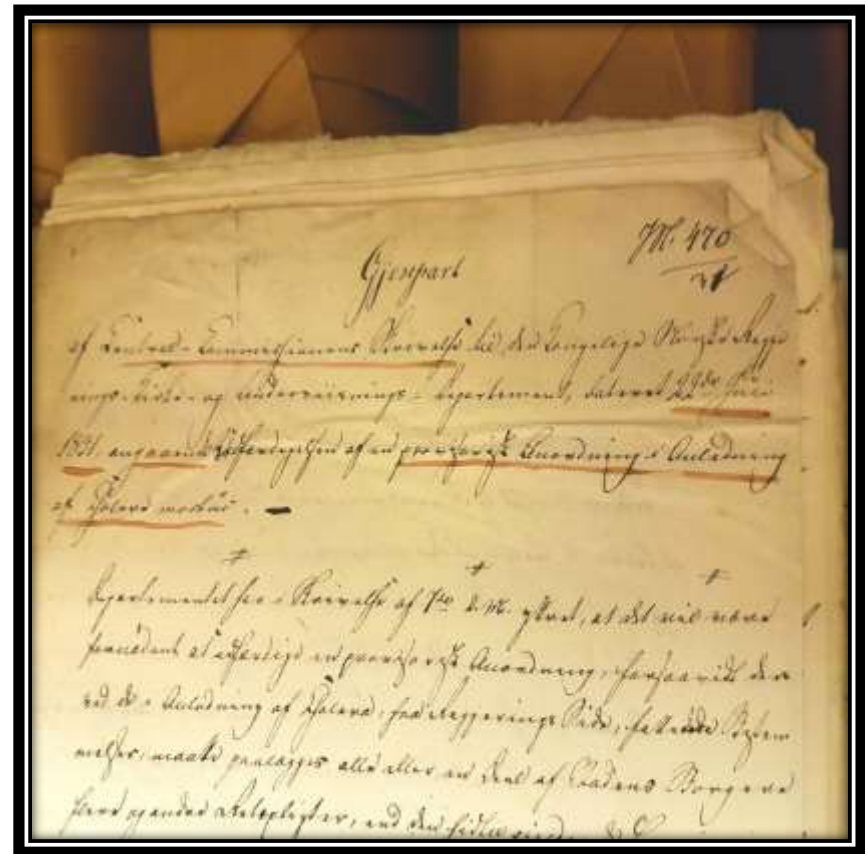 M. 470
Gjenpart
af Central-Commissionens Skrivelse til den Kongelige Norske Regje
rings-Kirke- og Underviisnings-Departement, dateret 22de Juli
1831 angaaende Udfærdigelsen af en provisorisk Anordning i Anledning
af Cholera morbus.
Departementet har i Skrivelse af 7de d. M. yttret, at det vil være
fornødent at udfærdige en provisorisk Anordning, forsaavidt der
ved de i Anledning af Cholera, fra Regjerings Side, fattede Bestem
melser, maatte paalægges alle eller en Deel af Stadens Borgere
flere og andre Retspligter, end den hidtil